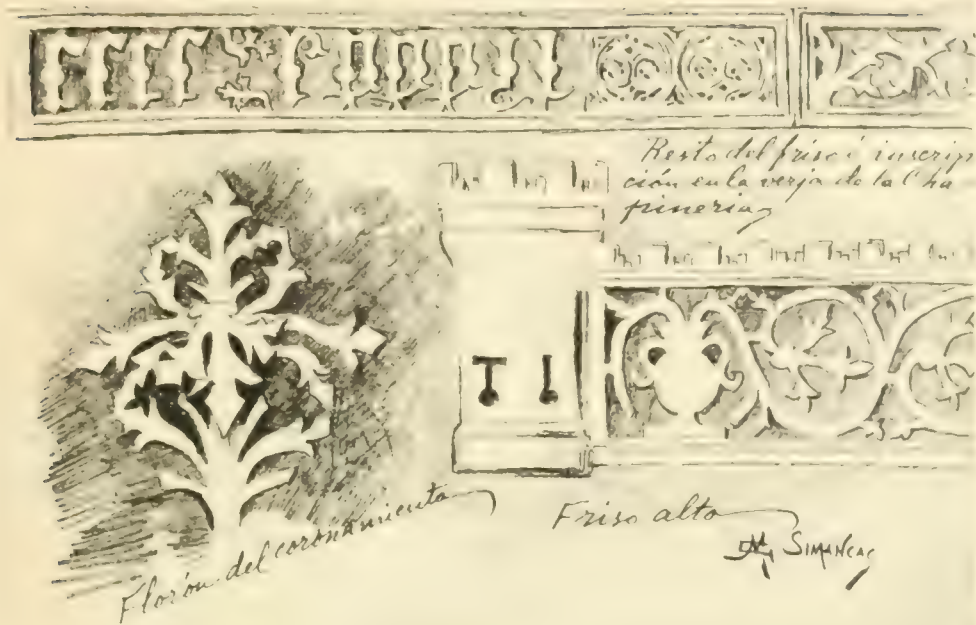 Resto del friso é inscrip
ción en la verja de la Cha
pineria
Florón del coronamiento
Friso alto
Simancas